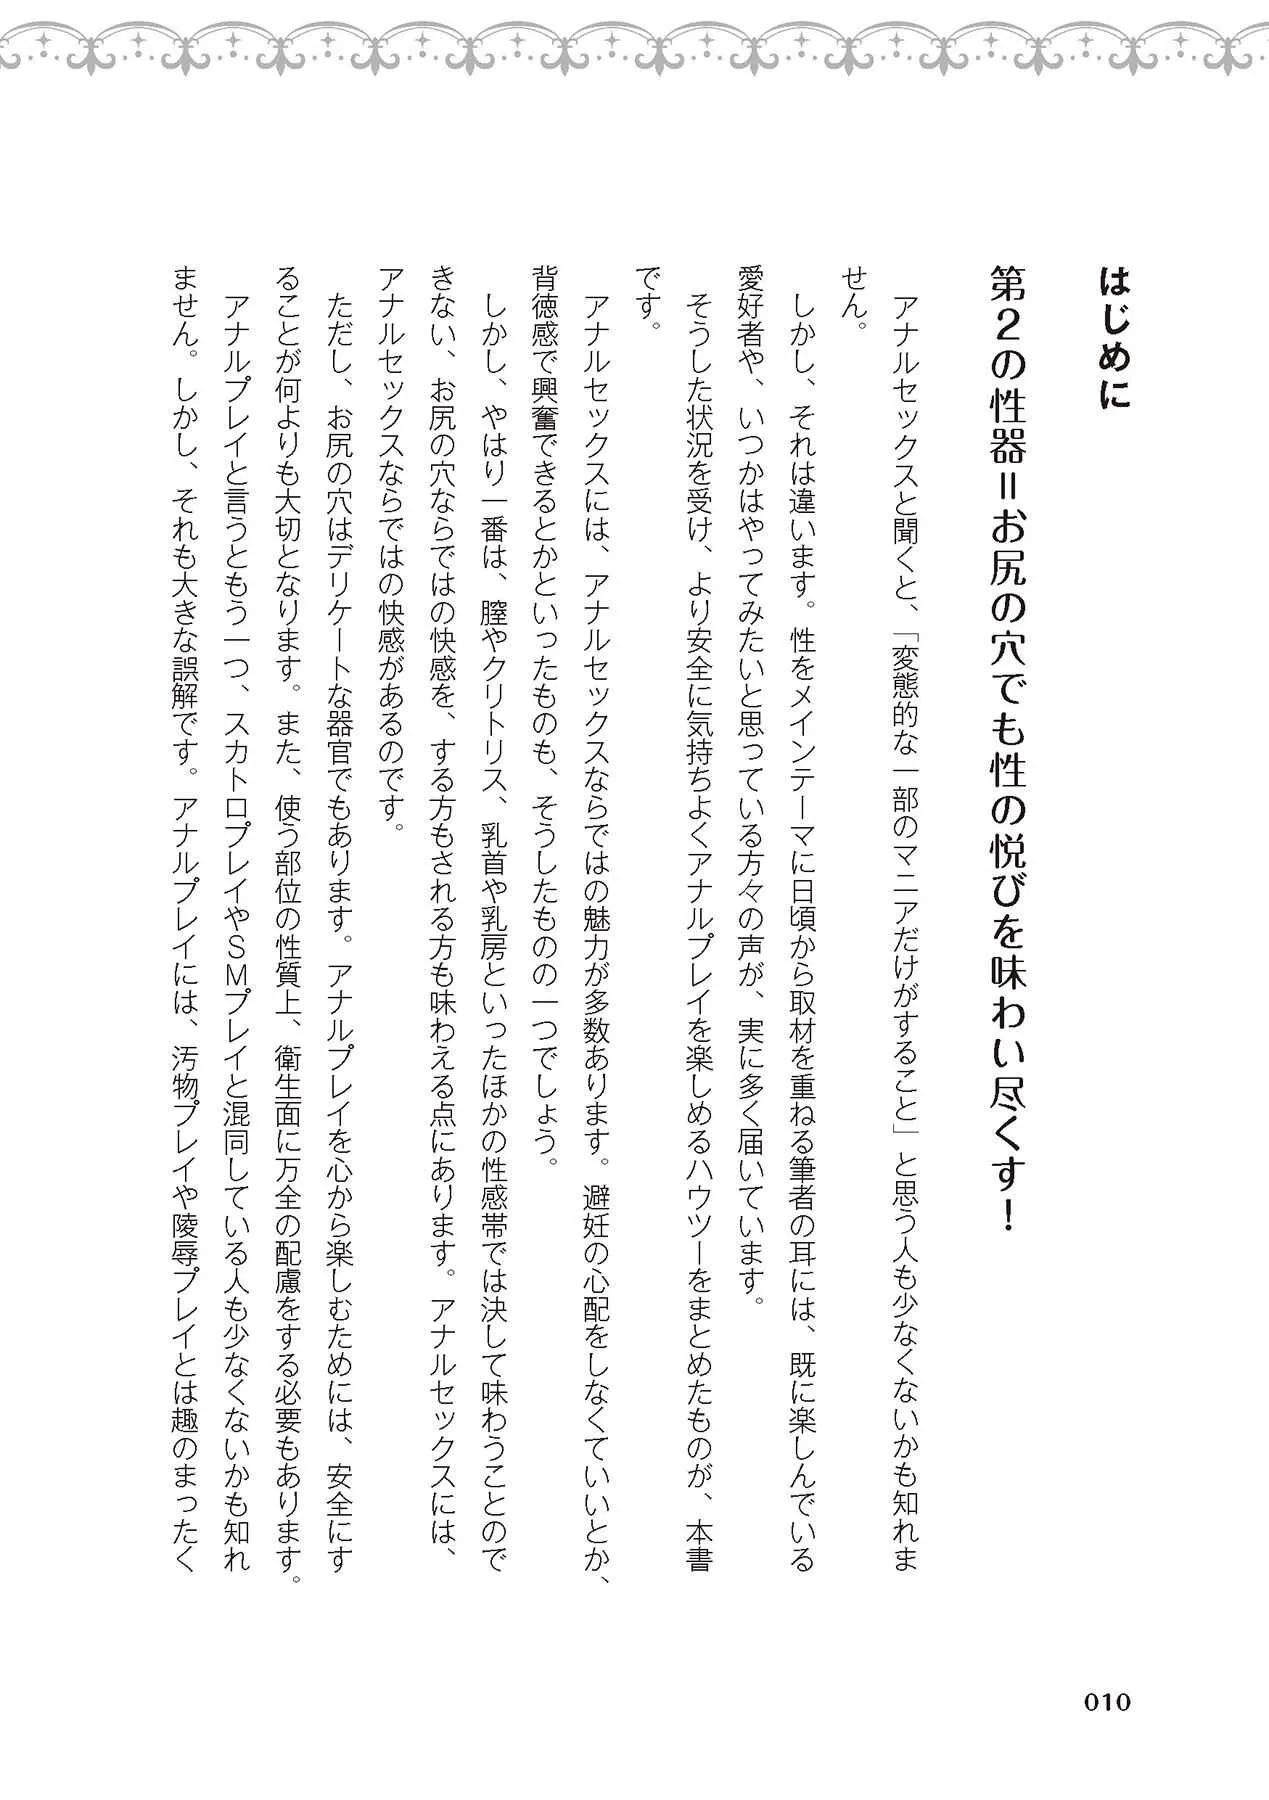 はじめに
第2の性器=お尻の穴でも性の悦びを味わい尽くす!
アナルセックスと聞くと、「変態的な一部のマニアだけがすること」と思う人も少なくないかも知れま
せん。
しかし、それは違います。性をメインテーマに日頃から取材を重ねる筆者の耳には、既に楽しんでいる
愛好者や、いつかはやってみたいと思っている方々の声が、実に多く届いています。
そうした状況を受け、より安全に気持ちよくアナルプレイを楽しめるハウツーをまとめたものが、本書
です。
アナルセックスには、アナルセックスならではの魅力が多数あります。避妊の心配をしなくていいとか、
背徳感で興奮できるとかといったものも、そうしたものの一つでしょう。
しかし、やはり一番は、膣やクリトリス、乳首や乳房といったほかの性感帯では決して味わうことので
きない、お尻の穴ならではの快感を、する方もされる方も味わえる点にあります。アナルセックスには、
アナルセックスならではの快感があるのです。
ただし、お尻の穴はデリケートな器官でもあります。アナルプレイを心から楽しむためには、安全にす
ることが何よりも大切となります。また、使う部位の性質上、衛生面に万全の配慮をする必要もあります。
アナルプレイと言うともう一つ、スカトロプレイやSMプレイと混同している人も少なくないかも知れ
ません。しかし、それも大きな誤解です。アナルプレイには、汚物プレイや陵辱プレイとは趣のまったく
010